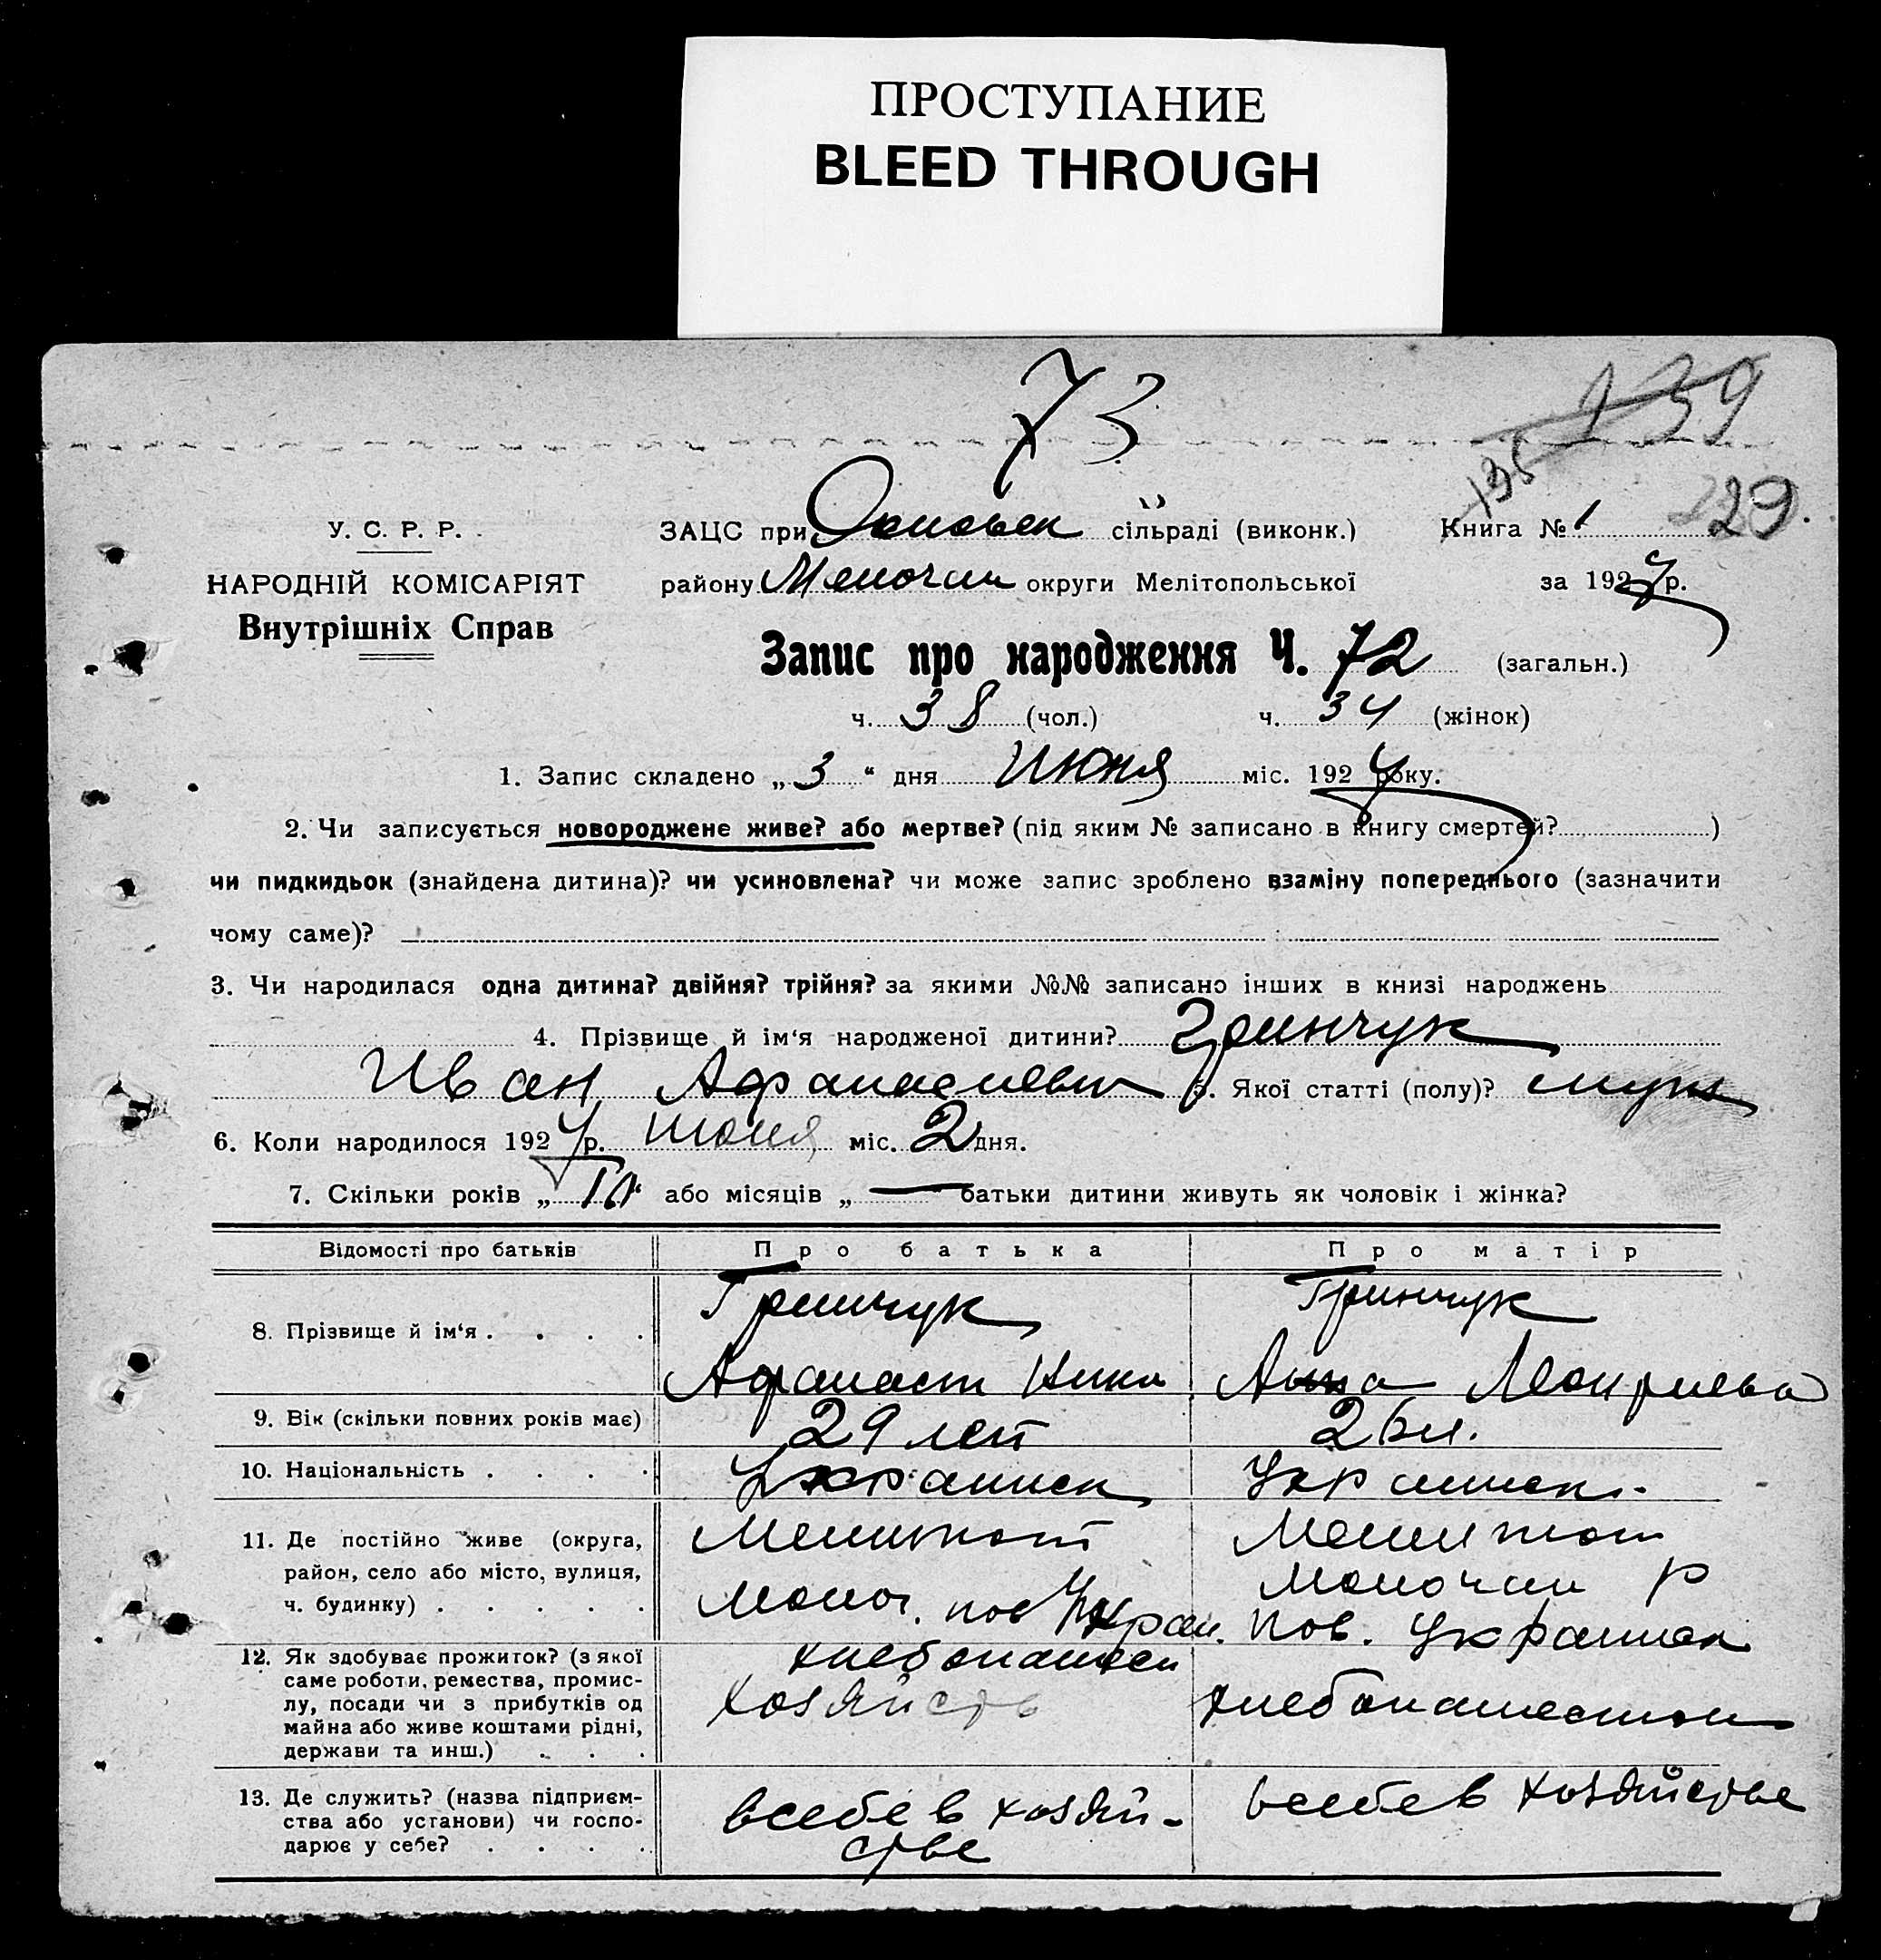 ПРОСТУПАНИЕ
BLEED THROUGH
73
139
135
29.
У. С. Р. Р.
ЗАЦС при сільраді (виконк.) Книга № 1
НАРОДНІЙ КОМІСАРІЯТ
району Молочан округи Мелітопольської за 1927р.
Внутрішніх Справ
Запис про народження Ч. 72 (загальн.)
ч. 38 (чол.) ч. 34 (жінок)
1. Запис складено „ 3 “ дня Июня міс. 1927 року.
2. Чи записується новороджене живе? або мертве? (під яким № записано в книгу смертей? )
чи пидкидьок (знайдена дитина)? чи усиновлена? чи може запис зроблено взаміну попереднього (зазначити
чому саме)?
3. Чи народилася одна дитина? двійня? трійня? за якими №№ записано інших в книзі народжень
4. Прізвище й ім‘я народженої дитини? Гринчук
Иван Афанасиевич 5. Якої статті (полу)? муж
6. Коли народилося 1927р. июня міс. 2 дня.
7. Скільки років „ “ або місяців „ — “ батьки дитини живуть як чоловік і жінка?
Відомості про батьків Про батька Про матір
8. Прізвище й ім‘я . . . . Гринчук Гринчук
Афанасий Ники Анна
9. Вік (скільки повних років має) 29 лет 26 л.
10. Національність . . . . Украинец Украинск.
11. Де постійно живе (округа, Мелитоп Мелитоп
район, село або місто, вулиця, Молочан р
ч. будинку) . . . . . Молоч. пос Украи. пос. Украинск
12. Як здобуває прожиток? (з якої хлебопашец
саме роботи, ремества, промис-
лу, посади чи з прибутків од хозяйств хлебопашеством
майна або живе коштами рідні,
держави та инш.) . . .
13. Де служить? (назва підприєм- в себе в хозяй- в себе в хозяйстве
ства або установи) чи госпо- стве
дарює у себе? . . . .